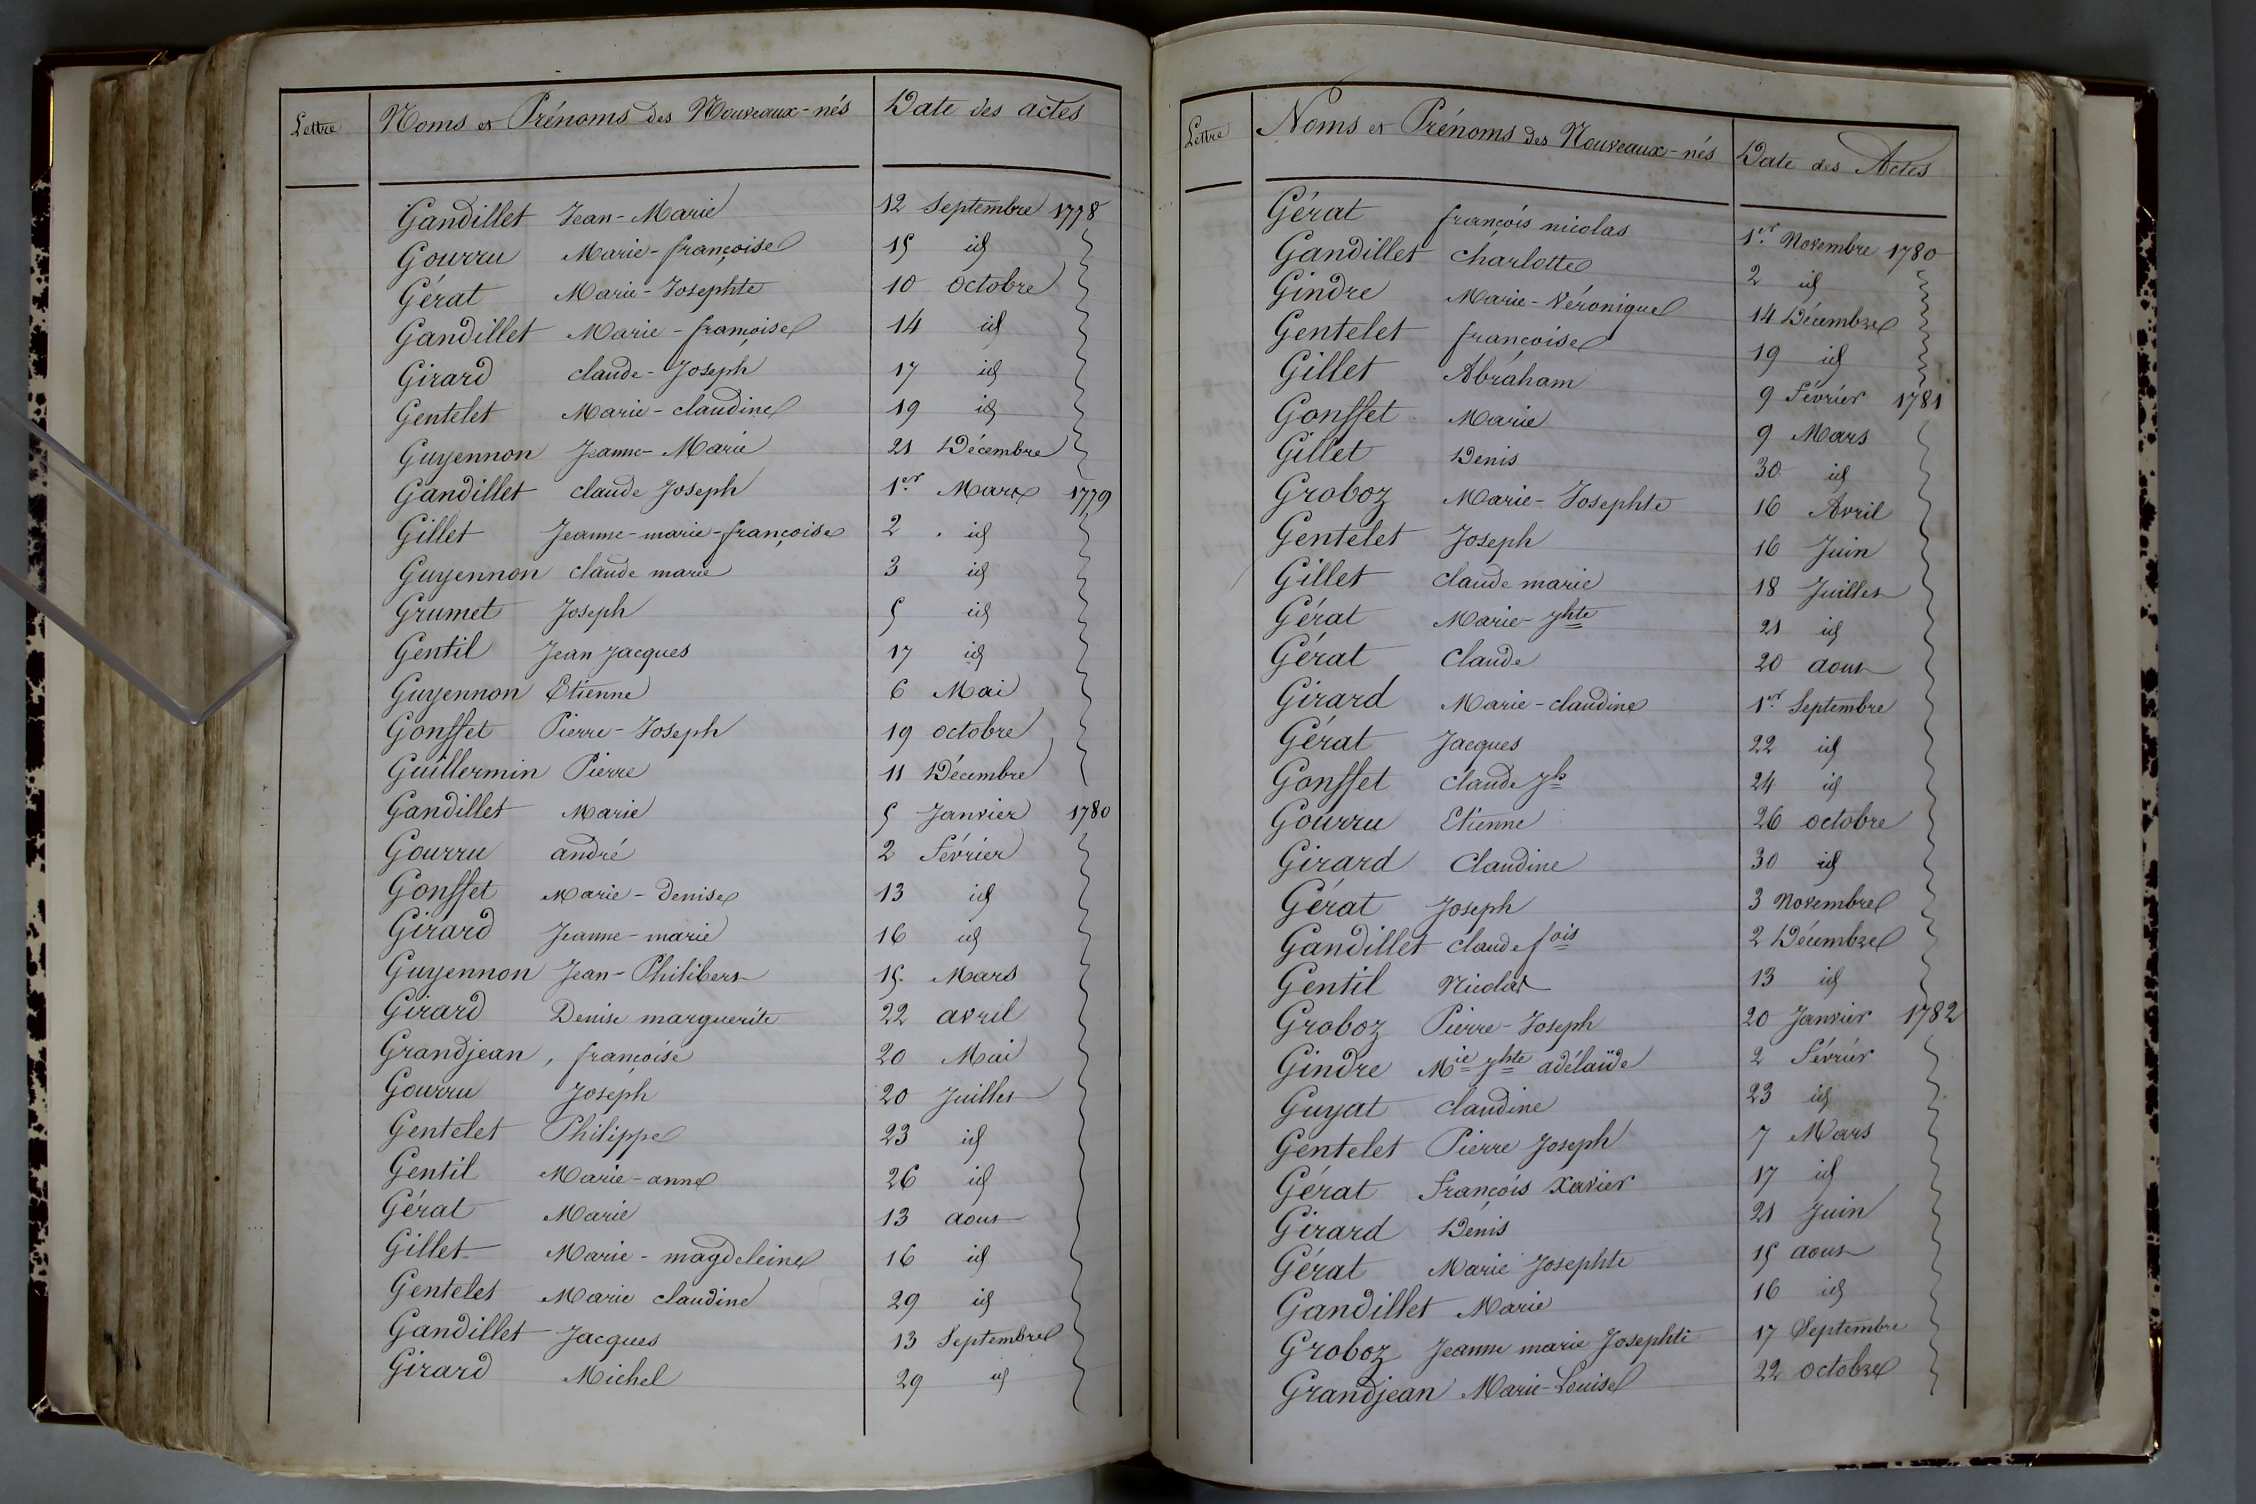 Lettre Noms et Prénoms des Nouveaux-nés Date des actes
Gandillet Jean-Marie 12 Septembre 1778
Gourru Marie-françoise 15 id
Gérat Marie-Josephte 10 octobre
Gandillet Marie-françoise 14 id
Girard claude-Joseph 17 id
Gentelet Marie-claudine 19 id
Guyennon Jeanne-Marie 21 Décembre
Gandillet claude Joseph 1er Mars 1779
Gillet Jeanne-marie-françoise 2 id
Guyennon claude marie 3 id
Grumet Joseph 5 id
Gentil Jean Jacques 17 id
Guyennon Etienne 6 Mai
Gonsset Pierre-Joseph 19 octobre
Guillermin Pierre 11 Décembre
Gandillet Marie 5 Janvier 1780
Gourru andré 2 Février
Gonsset Marie-Denise 13 id
Girard Jeanne-marie 16 id
Guyennon Jean-Philibert 15 Mars
Girard Denise marguerite 22 avril
Grandjean, françoise 20 Mai
Gourru Joseph 20 Juillet
Gentelet Philippe 23 id
Gentil Marie-anne 26 id
Gérat Marie 13 aout
Gillet Marie-magdeleine 16 id
Gentelet Marie claudine 29 id
Gandillet Jacques 13 Septembre
Girard Michel 29 id
Lettre Noms et Prénoms des Nouveaux-nés Date des Actes
Gérat françois nicolas 1er Novembre 1780
Gandillet charlotte 2 id
Gindre Marie-Véronique 14 Décembre
Gentelet françoise 19 id
Gillet Abraham 9 Février 1781
Gonsset Marie 9 Mars
Gillet Denis 30 id
Groboz Marie-Josephte 16 Avril
Gentelet Joseph 16 Juin
Gillet claude marie 18 Juillet
Gérat Marie-Jhte 21 id
Gérat Claude 20 aout
Girard Marie-claudine 1er Septembre
Gérat Jacques 22 id
Gonsset Claude Jh 24 id
Gourru Etienne 26 octobre
Girard Claudine 30 id
Gérat Joseph 3 Novembre
Gandillet claude fois 2 Décembre
Gentil Nicolas 13 id
Groboz Pierre-Joseph 20 Janvier 1782
Gindre Mie Jhte adélaïde 2 Février
Guyat claudine 23 id
Gentelet Pierre Joseph 7 Mars
Gérat François Xavier 17 id
Girard Denis 21 Juin
Gérat Marie Josephte 15 aout
Gandillet Marie 16 id
Groboz Jeanne marie Josephte 17 Septembre
Grandjean Marie-Louise 22 octobre